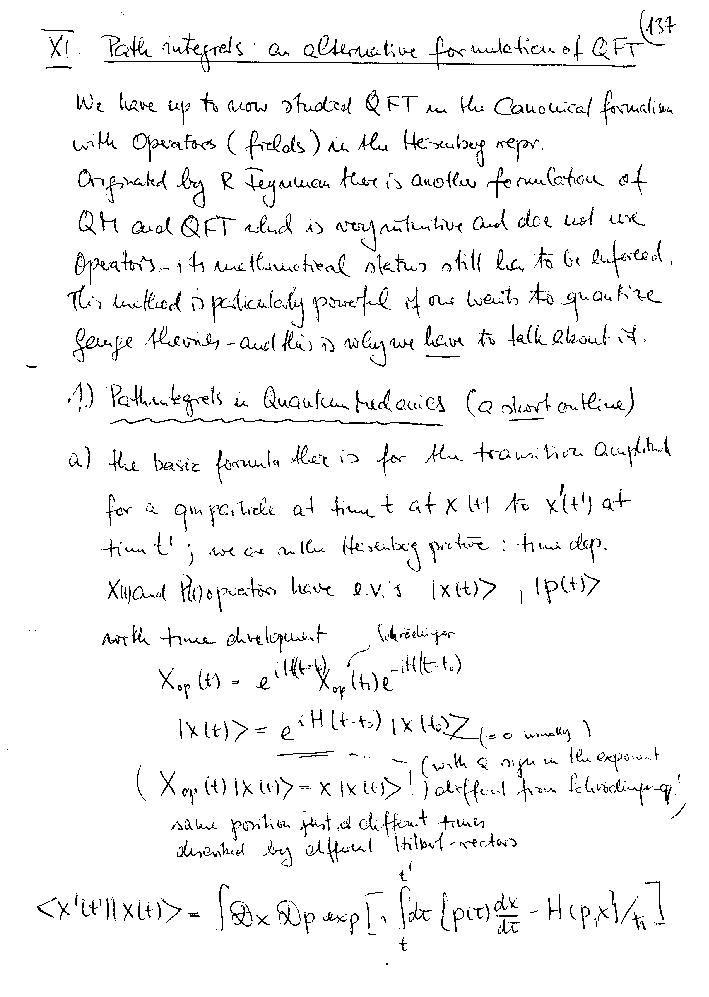 (137
XI. Path integrals: an alternative formulation of QFT
We have up to now studied QFT in the Canonical formalism
with Operators (fields) in the Heisenberg repr.
Originated by R Feynman there is another formulation of
QM and QFT which is very intuitive and doe not use
Operators - its mathematical status still has to be enforced.
This method is particularly powerful if one wants to quantize
gauge theories - and this is why we have to talk about it.
1.) Path integrals in Quantum Mechanics (a short outline)
a) the basic formula there is for the transition amplitude
for a qm particle at time t at x(t) to x'(t') at
time t' ; we are in the Heisenberg picture : time dep.
X(t) and P(t) operators have e.v.'s |x(t)> , |p(t)>
with time development Schrödinger
X_op (t) = e^{iH(t-t_0)} X_op (t_0) e^{-iH(t-t_0)}
|x(t)> = e^{iH(t-t_0)} |x(t_0)> (=0 usually)
(with a sign in the exponent
( X_op (t) |x(t)> = x |x(t)> ! ) different from Schrödinger eq!)
same position just at different times
described by different Hilbert-vectors
<x'(t')|x(t)> = ∫ Dx Dp exp [i ∫_t^{t'} dτ {p(τ) dx/dτ - H(p,x)}/ħ]